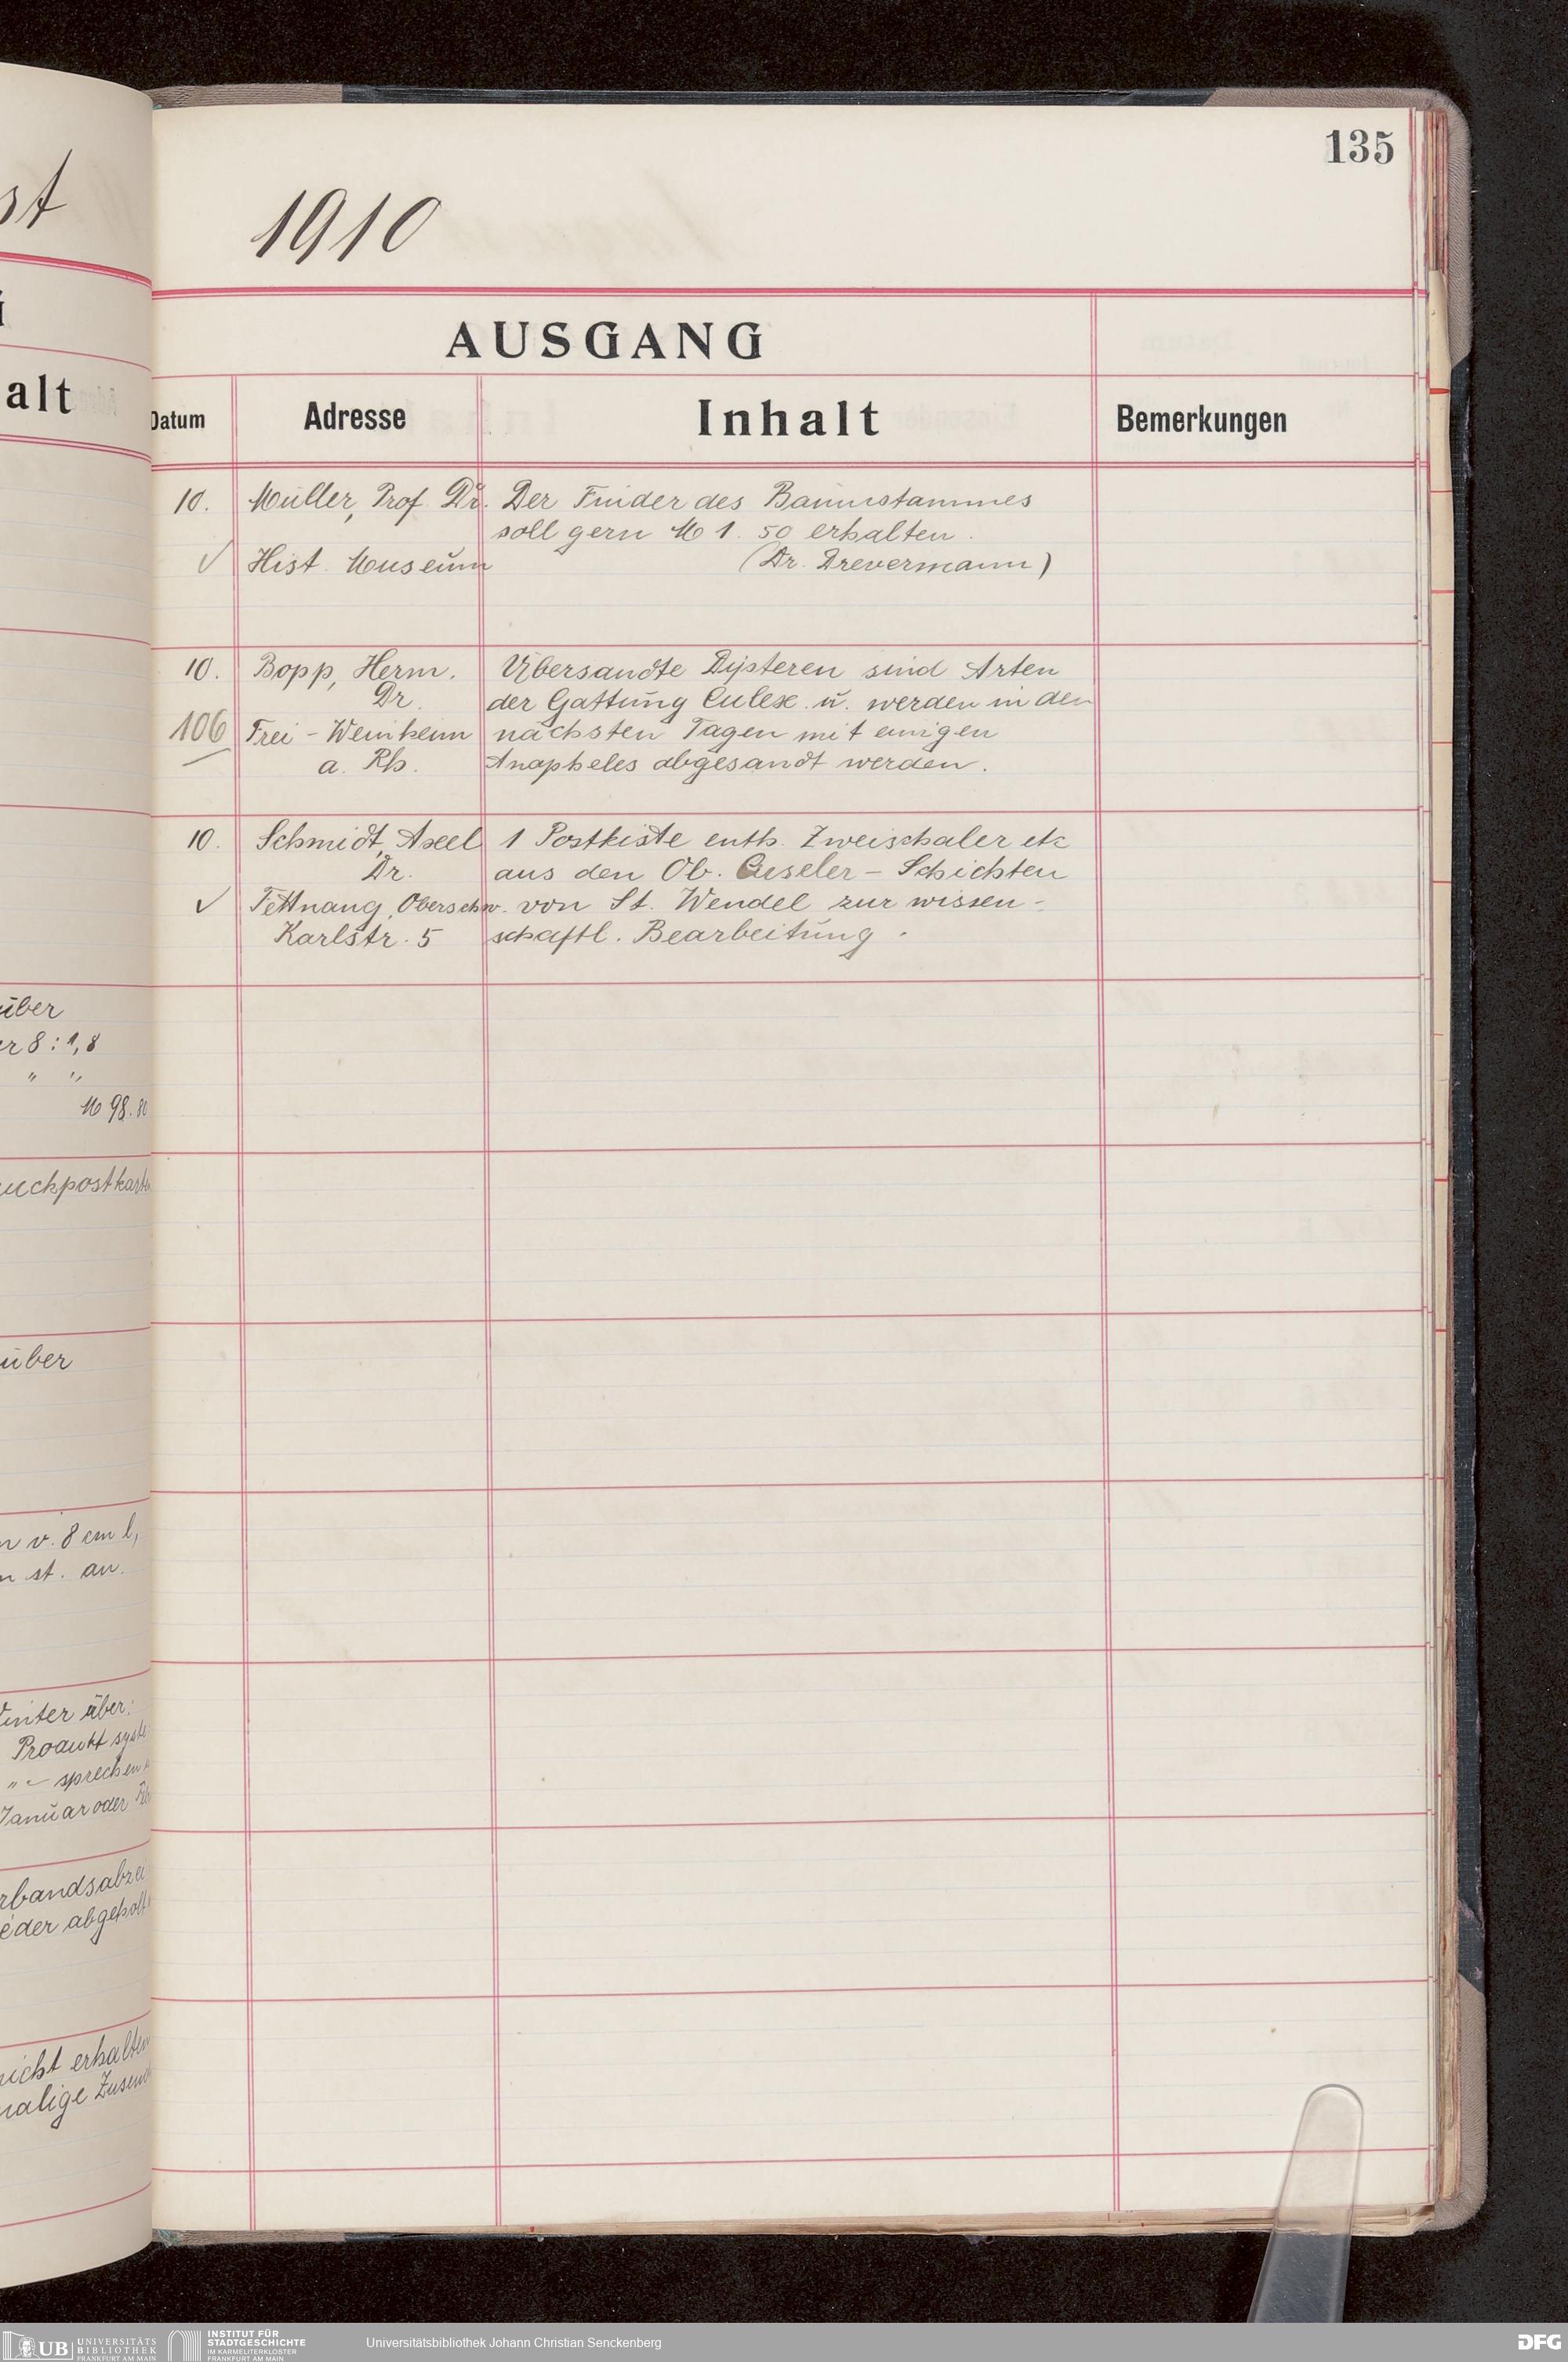 st
alt
über
er 8 : 1,8
" "
M 98.80
über
n v. 8 cm l,
n st. an.
Winter über:
Produkt syste
" – sprechen
Januar oder
rbandsabzei
eder abgeholt
nicht erhalten
malige Zusend
135
1910
AUSGANG
Datum Adresse Inhalt Bemerkungen
10. Müller, Prof. Dr. Der Finder des Baumstammes
soll gern M 1. 50 erhalten.
✓ Hist. Museum (Dr. Drevermann)
10. Bopp, Herm. Übersandte Dipteren sind Arten
Dr. der Gattung Culex u. werden in den
106 Frei-Weinheim nächsten Tagen mit einigen
a. Rh. Anapheles abgesandt werden.
10. Schmidt, Axel 1 Postkiste enth. Zweischaler etc
Dr. aus den Ob. Cuseler-Schichten
✓ Tettnang, Oberschw. von St. Wendel zur wissen-
Karlstr. 5 schaftl. Bearbeitung.
UB UNIVERSITÄTS
BIBLIOTHEK
FRANKFURT AM MAIN
INSTITUT FÜR
STADTGESCHICHTE
IM KARMELITERKLOSTER
FRANKFURT AM MAIN
Universitätsbibliothek Johann Christian Senckenberg
DFG